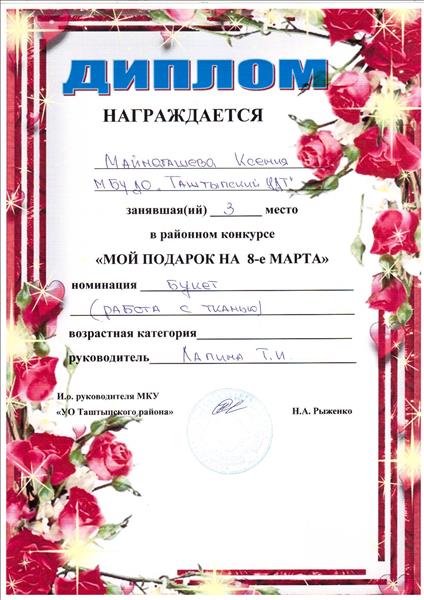 ДИПЛОМ
НАГРАЖДАЕТСЯ
Майногашева Ксения
МБУ ДО "Таштыпский ЦДТ"
занявшая(ий) 3 место
в районном конкурсе
«МОЙ ПОДАРОК НА 8-е МАРТА»
номинация Букет
(работа с тканью)
возрастная категория
руководитель Лапина Т.И
И.о. руководителя МКУ
«УО Таштыпского района» Н.А. Рыженко